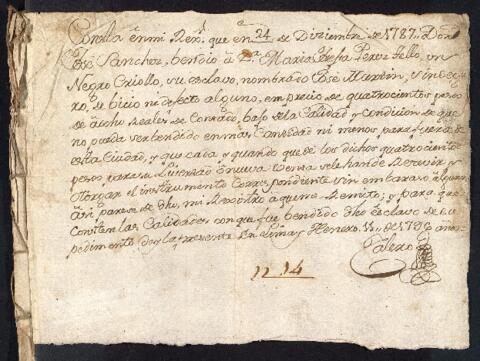 Consta en mi Rex.º que en 24 de Diziembre de 1787. Don
Jose Sanchez, bendio â D.ª Maria Josefa Perez Tello, un
Negro Criollo, su esclavo, nombrado Jose Martin, sin
de bicio ni defecto alguno, en precio de quatrocientos pesos
de âocho Reales de Contado, bajo de la Calidad y condicion de que
no pueda ser bendido en mas Cantidad ni menos para fuera de
esta Ciudad, y que cada y quando que de los dichos quatrocientos
pesos para su Livertad ô nueva Venta se le ha de Recivir y
otorgar el instrumento Correspondiente sin embaraso alguno
asi parese de dho mi Rexistro a que me Remito; y para que
Consten las Calidades con que fue bendido dho esclavo de su
pedimento doy la presente en Lima y Henero de 179 años